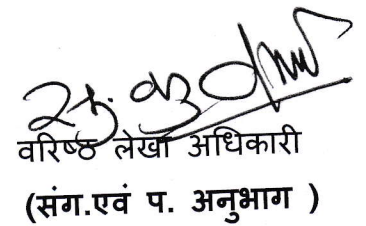 वरिष्ठ लेखा अधिकारी
(संग.एवं प. अनुभाग )